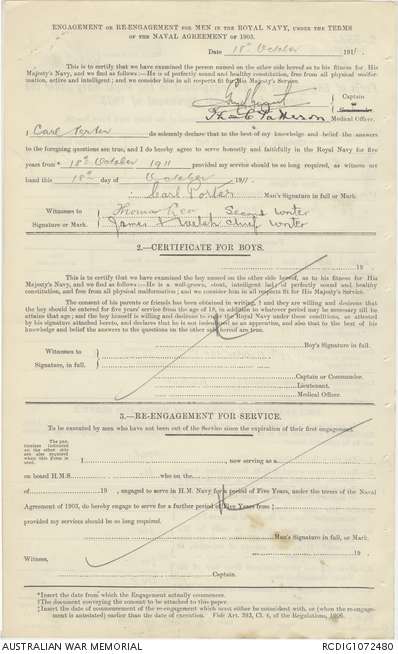 ENGAGEMENT OR RE-ENGAGEMENT FOR MEN IN THE ROYAL NAVY, UNDER THE TERMS
OF THE NAVAL AGREEMENT OF 1903.
Date 18th October 1911.
This is to certify that we have examined the person named on the other side hereof, as to his fitness for His
Majesty's Navy, and we find as follows:—He is of perfectly sound and healthy constitution, free from all physical malfor-
mation, active and intelligent; and we consider him in all respects fit for His Majesty's Service.
Captain
or Commander.
Patterson Medical Officer.
I Carl Porter do solemnly declare that to the best of my knowledge and belief the answers
to the foregoing questions are true, and I do hereby agree to serve honestly and faithfully in the Royal Navy for five
years from * 18th October 1911 provided my service should be so long required, as witness my
hand this 18th day of October 1911.
Carl Porter Man's Signature in full, or Mark.
Witnesses to Thomas Second Writer
Signature or Mark. James Walsh Chief Writer
2.—CERTIFICATE FOR BOYS.
19
This is to certify that we have examined the boy named on the other side hereof, as to his fitness for His
Majesty's Navy, and we find as follows:—He is a well-grown, stout, intelligent lad, of perfectly sound and healthy
constitution, and free from all physical malformation; and we consider him in all respects fit for His Majesty's Service.
The consent of his parents or friends has been obtained in writing, † and they are willing and desirous that
the boy should be entered for five years' service from the age of 18, in addition to whatever period may be necessary till he
attains that age; and the boy himself is willing and desirous to enter the Royal Navy under those conditions, as attested
by his signature attached hereto, and declares that he is not indentured as an apprentice, and also that to the best of his
knowledge and belief the answers to the questions on the other side hereof, are true.
Boy's Signature in full.
Witnesses to
Signature, in full.
Captain or Commander.
Lieutenant.
Medical Officer.
3.—RE-ENGAGEMENT FOR SERVICE.
To be executed by men who have not been out of the Service since the expiration of their first engagement.
The particulars indicated on the other side are also required when this Form is used.
I, now serving as a
on board H.M.S. who on the
of 19 , engaged to serve in H.M. Navy for a period of Five Years, under the terms of the Naval
Agreement of 1903, do hereby engage to serve for a further period of Five Years from ‡
provided my services should be so long required.
Man's Signature in full, or Mark.
19
Witness,
Captain.
*Insert the date from which the Engagement actually commences.
†The document conveying the consent to be attached to this paper.
‡Insert the date of commencement of the re-engagement which must either be coincident with, or (when the re-engage-
ment is antedated) earlier than the date of execution. Vide Art. 383, Cl. 4, of the Regulations, 1906.
AUSTRALIAN WAR MEMORIAL
RCDIG1072480